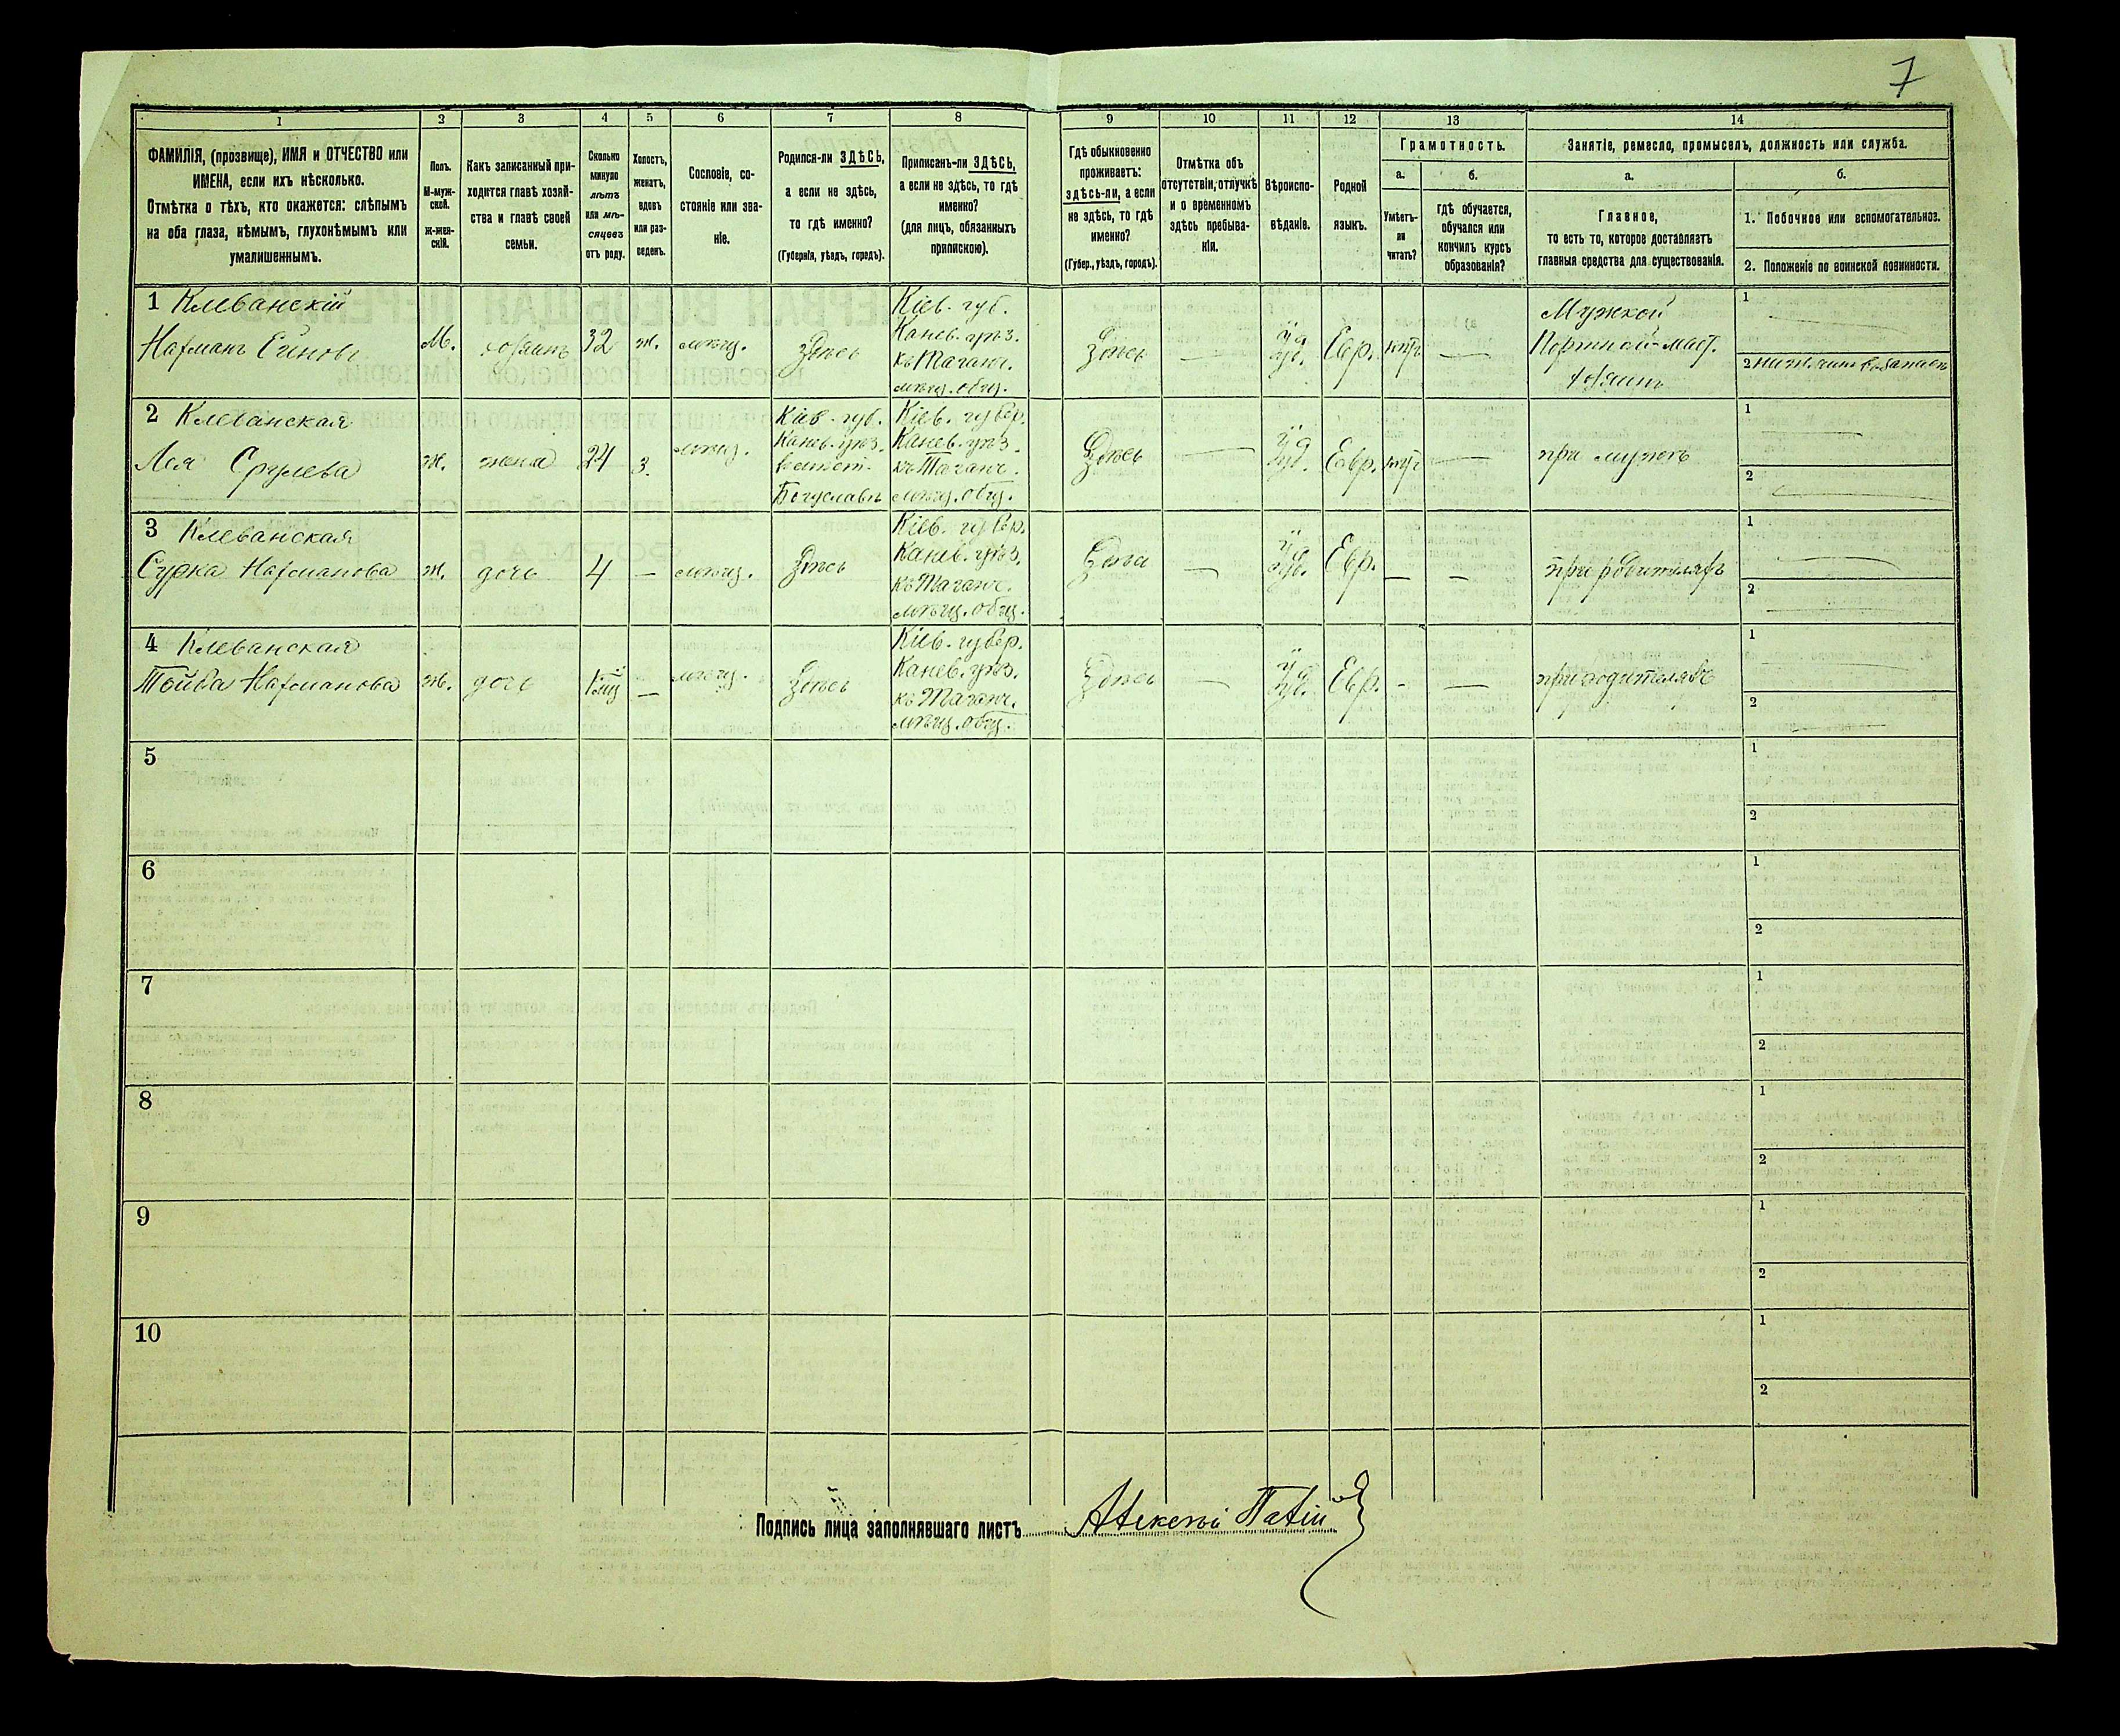 7
1 2 3 4 5 6 7 8 9 10 11 12 13 14
ФАМИЛІЯ, (прозвище), ИМЯ и ОТЧЕСТВО или
ИМЕНА, если ихъ нѣсколько.
Отмѣтка о тѣхъ, кто окажется: слѣпымъ
на оба глаза, нѣмымъ, глухонѣмымъ или
умалишеннымъ.
Полъ.
М-муж-
ской.
ж-жен-
скій.
Какъ записанный при-
ходится главѣ хозяй-
ства и главѣ своей
семьи.
Сколько
минуло
лѣтъ
или мѣ-
сяцевъ
отъ роду.
Холостъ,
женатъ,
вдовъ
или раз-
веденъ.
Сословіе, со-
стояніе или зва-
ніе.
Родился-ли ЗДѢСЬ,
а если не здѣсь,
то гдѣ именно?
(Губернія, уѣздъ, городъ).
Приписанъ-ли ЗДѢСЬ,
а если не здѣсь, то гдѣ
именно?
(для лицъ, обязанныхъ
припискою).
Гдѣ обыкновенно
проживаетъ:
здѣсь-ли, а если
не здѣсь, то гдѣ
именно?
(Губер., уѣздъ, городъ).
Отмѣтка объ
отсутствіи, отлучкѣ
и о временномъ
здѣсь пребыва-
ніи.
Вѣроиспо-
вѣданіе.
Родной
языкъ.
Грамотность.
а.
Умѣетъ-
ли
читать?
б.
гдѣ обучается,
обучался или
кончилъ курсъ
образованія?
Занятіе, ремесло, промыселъ, должность или служба.
а.
Главное,
то есть то, которое доставляетъ
главныя средства для существованія.
б.
1. Побочное или вспомогательное.
2. Положеніе по воинской повинности.
1 Клеванскій
Нахманъ
М. хозяинъ 32 ж. мѣщ. здѣсь
Кіев. губ.
Канев. уѣз.
къ Таганч.
мѣщ. общ.
Здѣсь — іуд. Евр. —
Мужской
Портной-маст.
хозяинъ
1
2
2 Клеванская
Лея Срулева
ж. жена 24 з. мѣщ.
Кіев. губ.
Канев. уѣз.
Богуславъ
Кіев. губер.
Канев. уѣз.
къ Таганч.
мѣщ. общ.
Здѣсь — іуд. Евр. —
при мужѣ
1
2
3 Клеванская
Сурка Нахманова
ж. дочь 4 — мѣщ. Здѣсь
Кіев. губер.
Канев. уѣз.
къ Таганч.
мѣщ. общ.
Здѣсь — іуд. Евр. — —
при родителяхъ
1
2
4 Клеванская
Тойба Нахманова
ж. дочь — мѣщ. Здѣсь
Кіев. губер.
Канев. уѣз.
къ Таганч.
мѣщ. общ.
Здѣсь — іуд. Евр. - —
при родителяхъ
1
2
5
1
2
6
1
2
7
1
2
8
1
2
9
1
2
10
1
2
Подпись лица заполнявшаго листъ